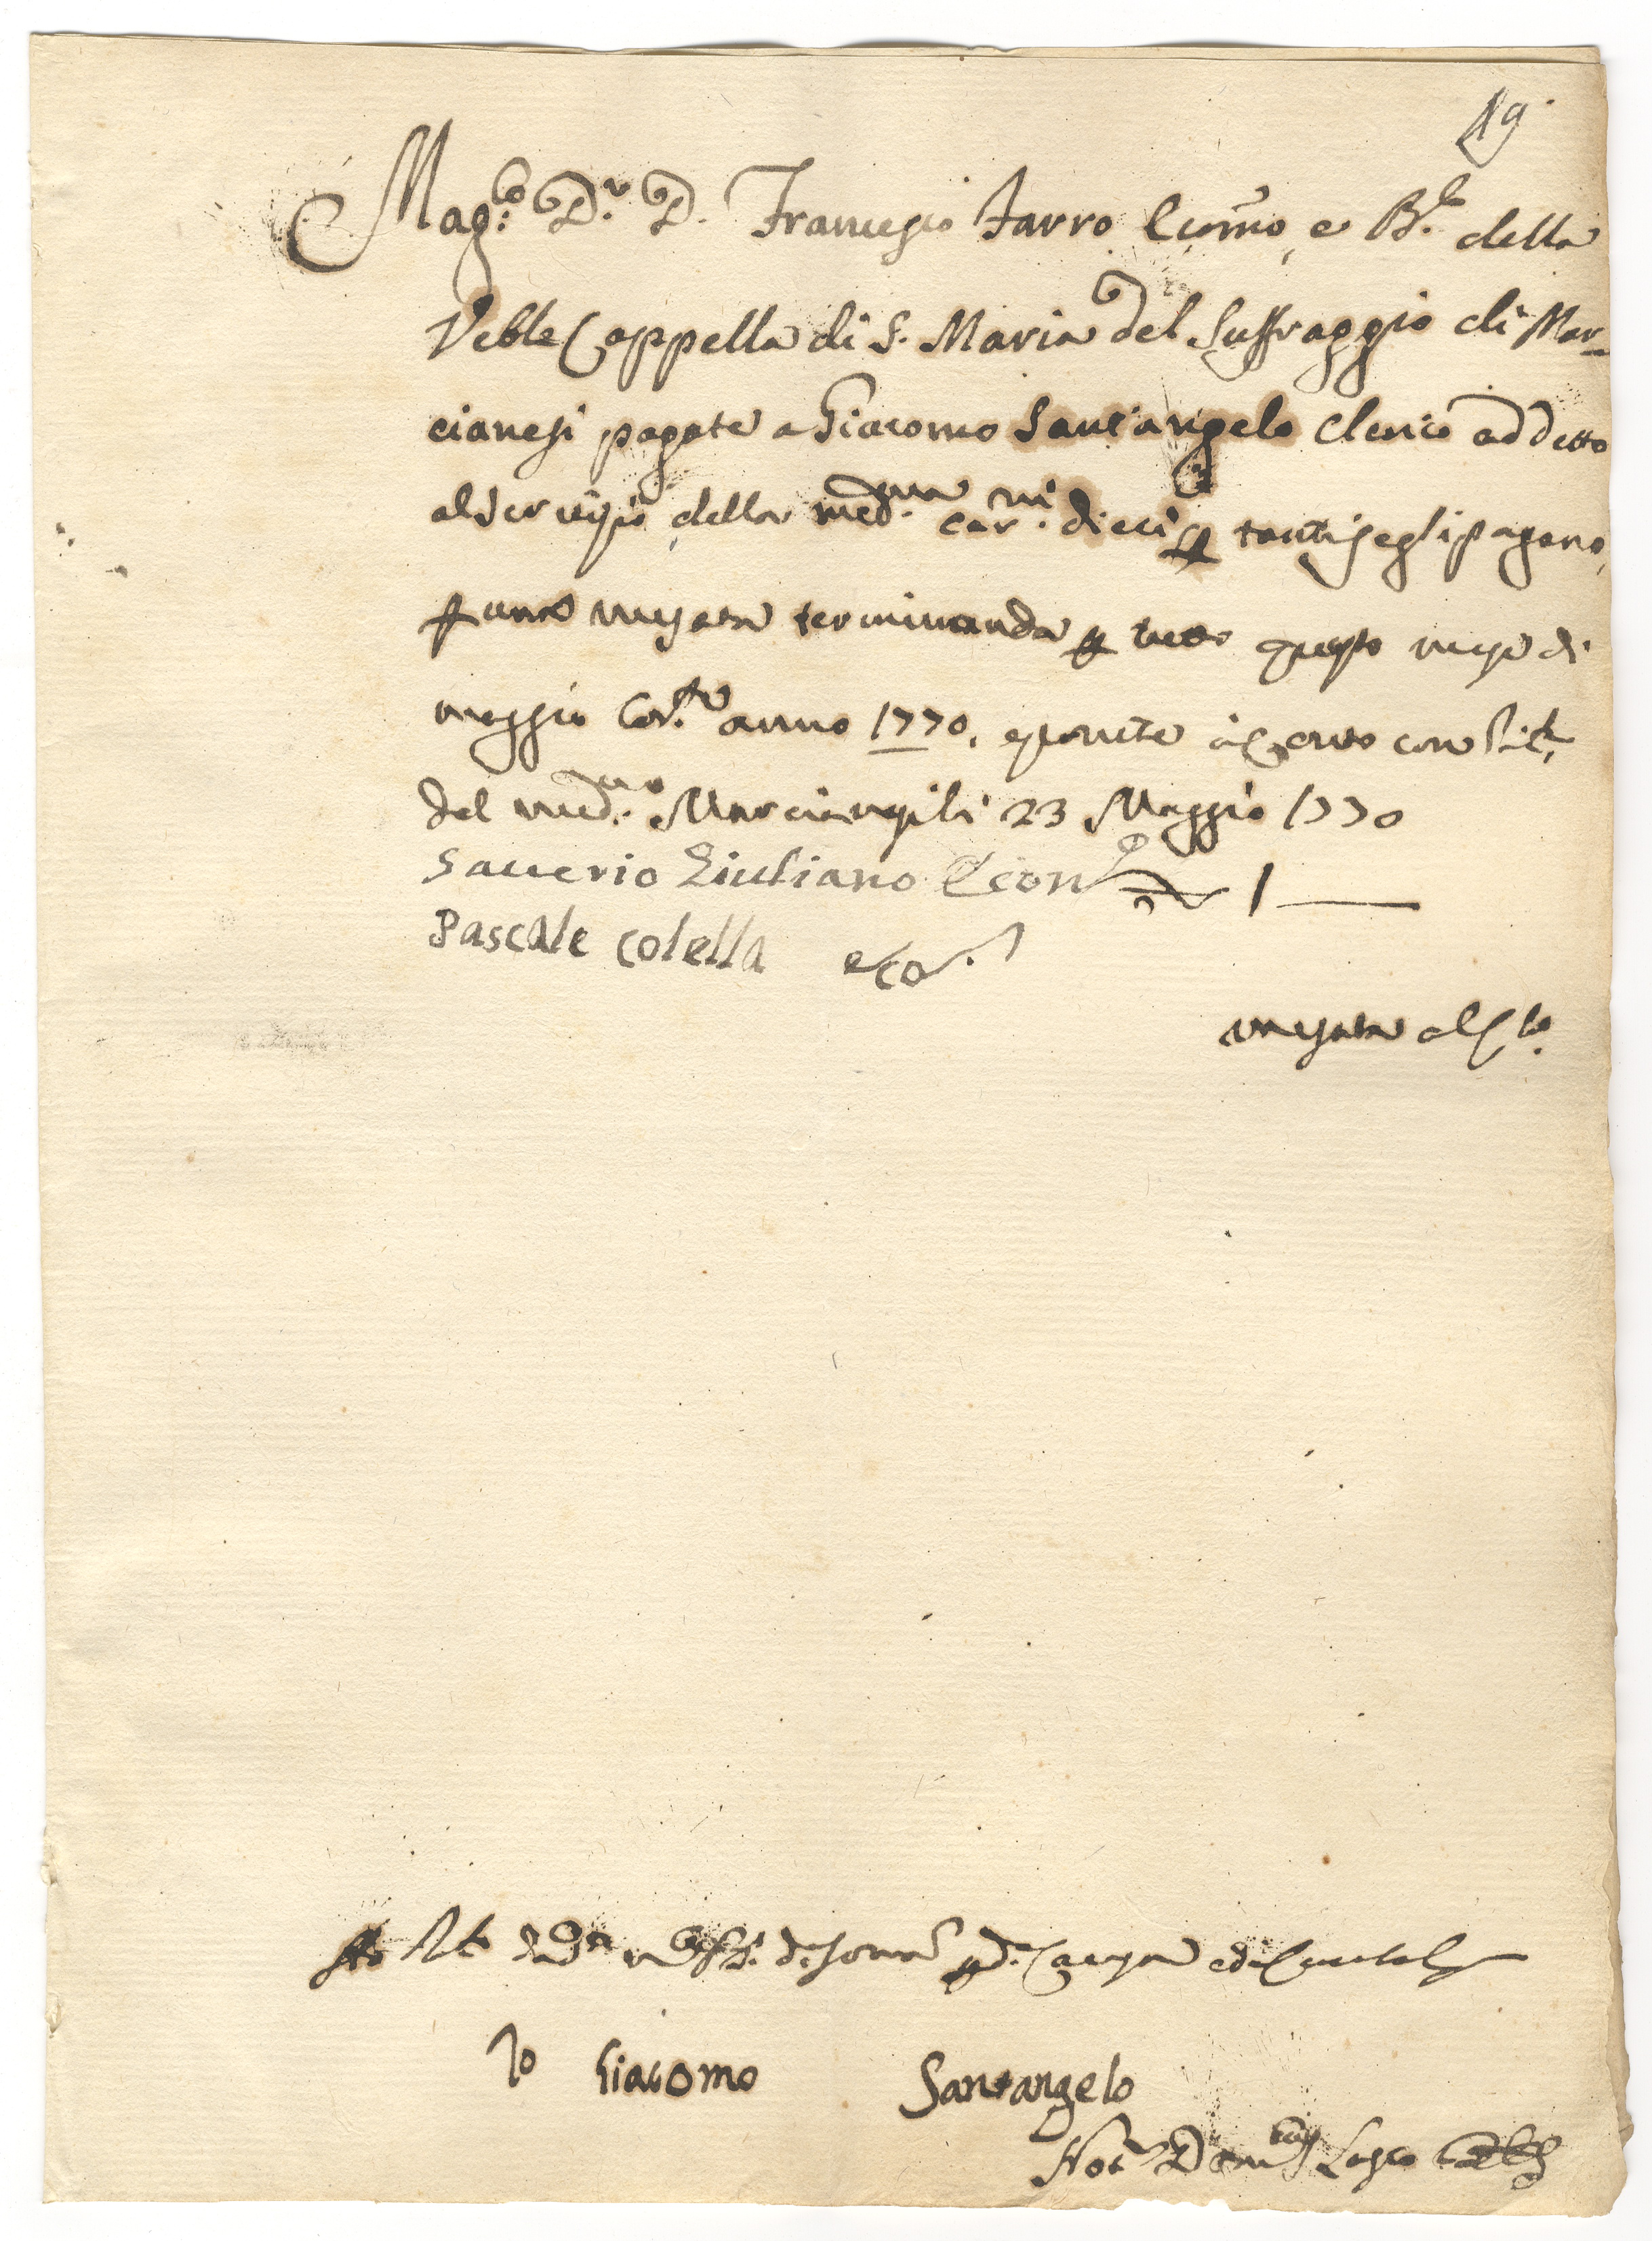 19
Mag.co D.r D. Francesco Farro Econ.o, e B.le della
Veble Cappella di S. Maria del Suffraggio di Mar-
cianesi pagate a Giacomo Sant'angelo Clerico addetto
al servizio della med.ma car.ni dieci p tanti se gli pagano,
p una mesata terminanda p tutto questo mese di
maggio cor.te anno 1770, e ponite
del med.mo Marcianesi li 23 Maggio 1770
Saverio Giuliano Econ
1 —
Pascale Colella eco.
mesata al
Io Giacomo Santangelo
Not.r Dom.co